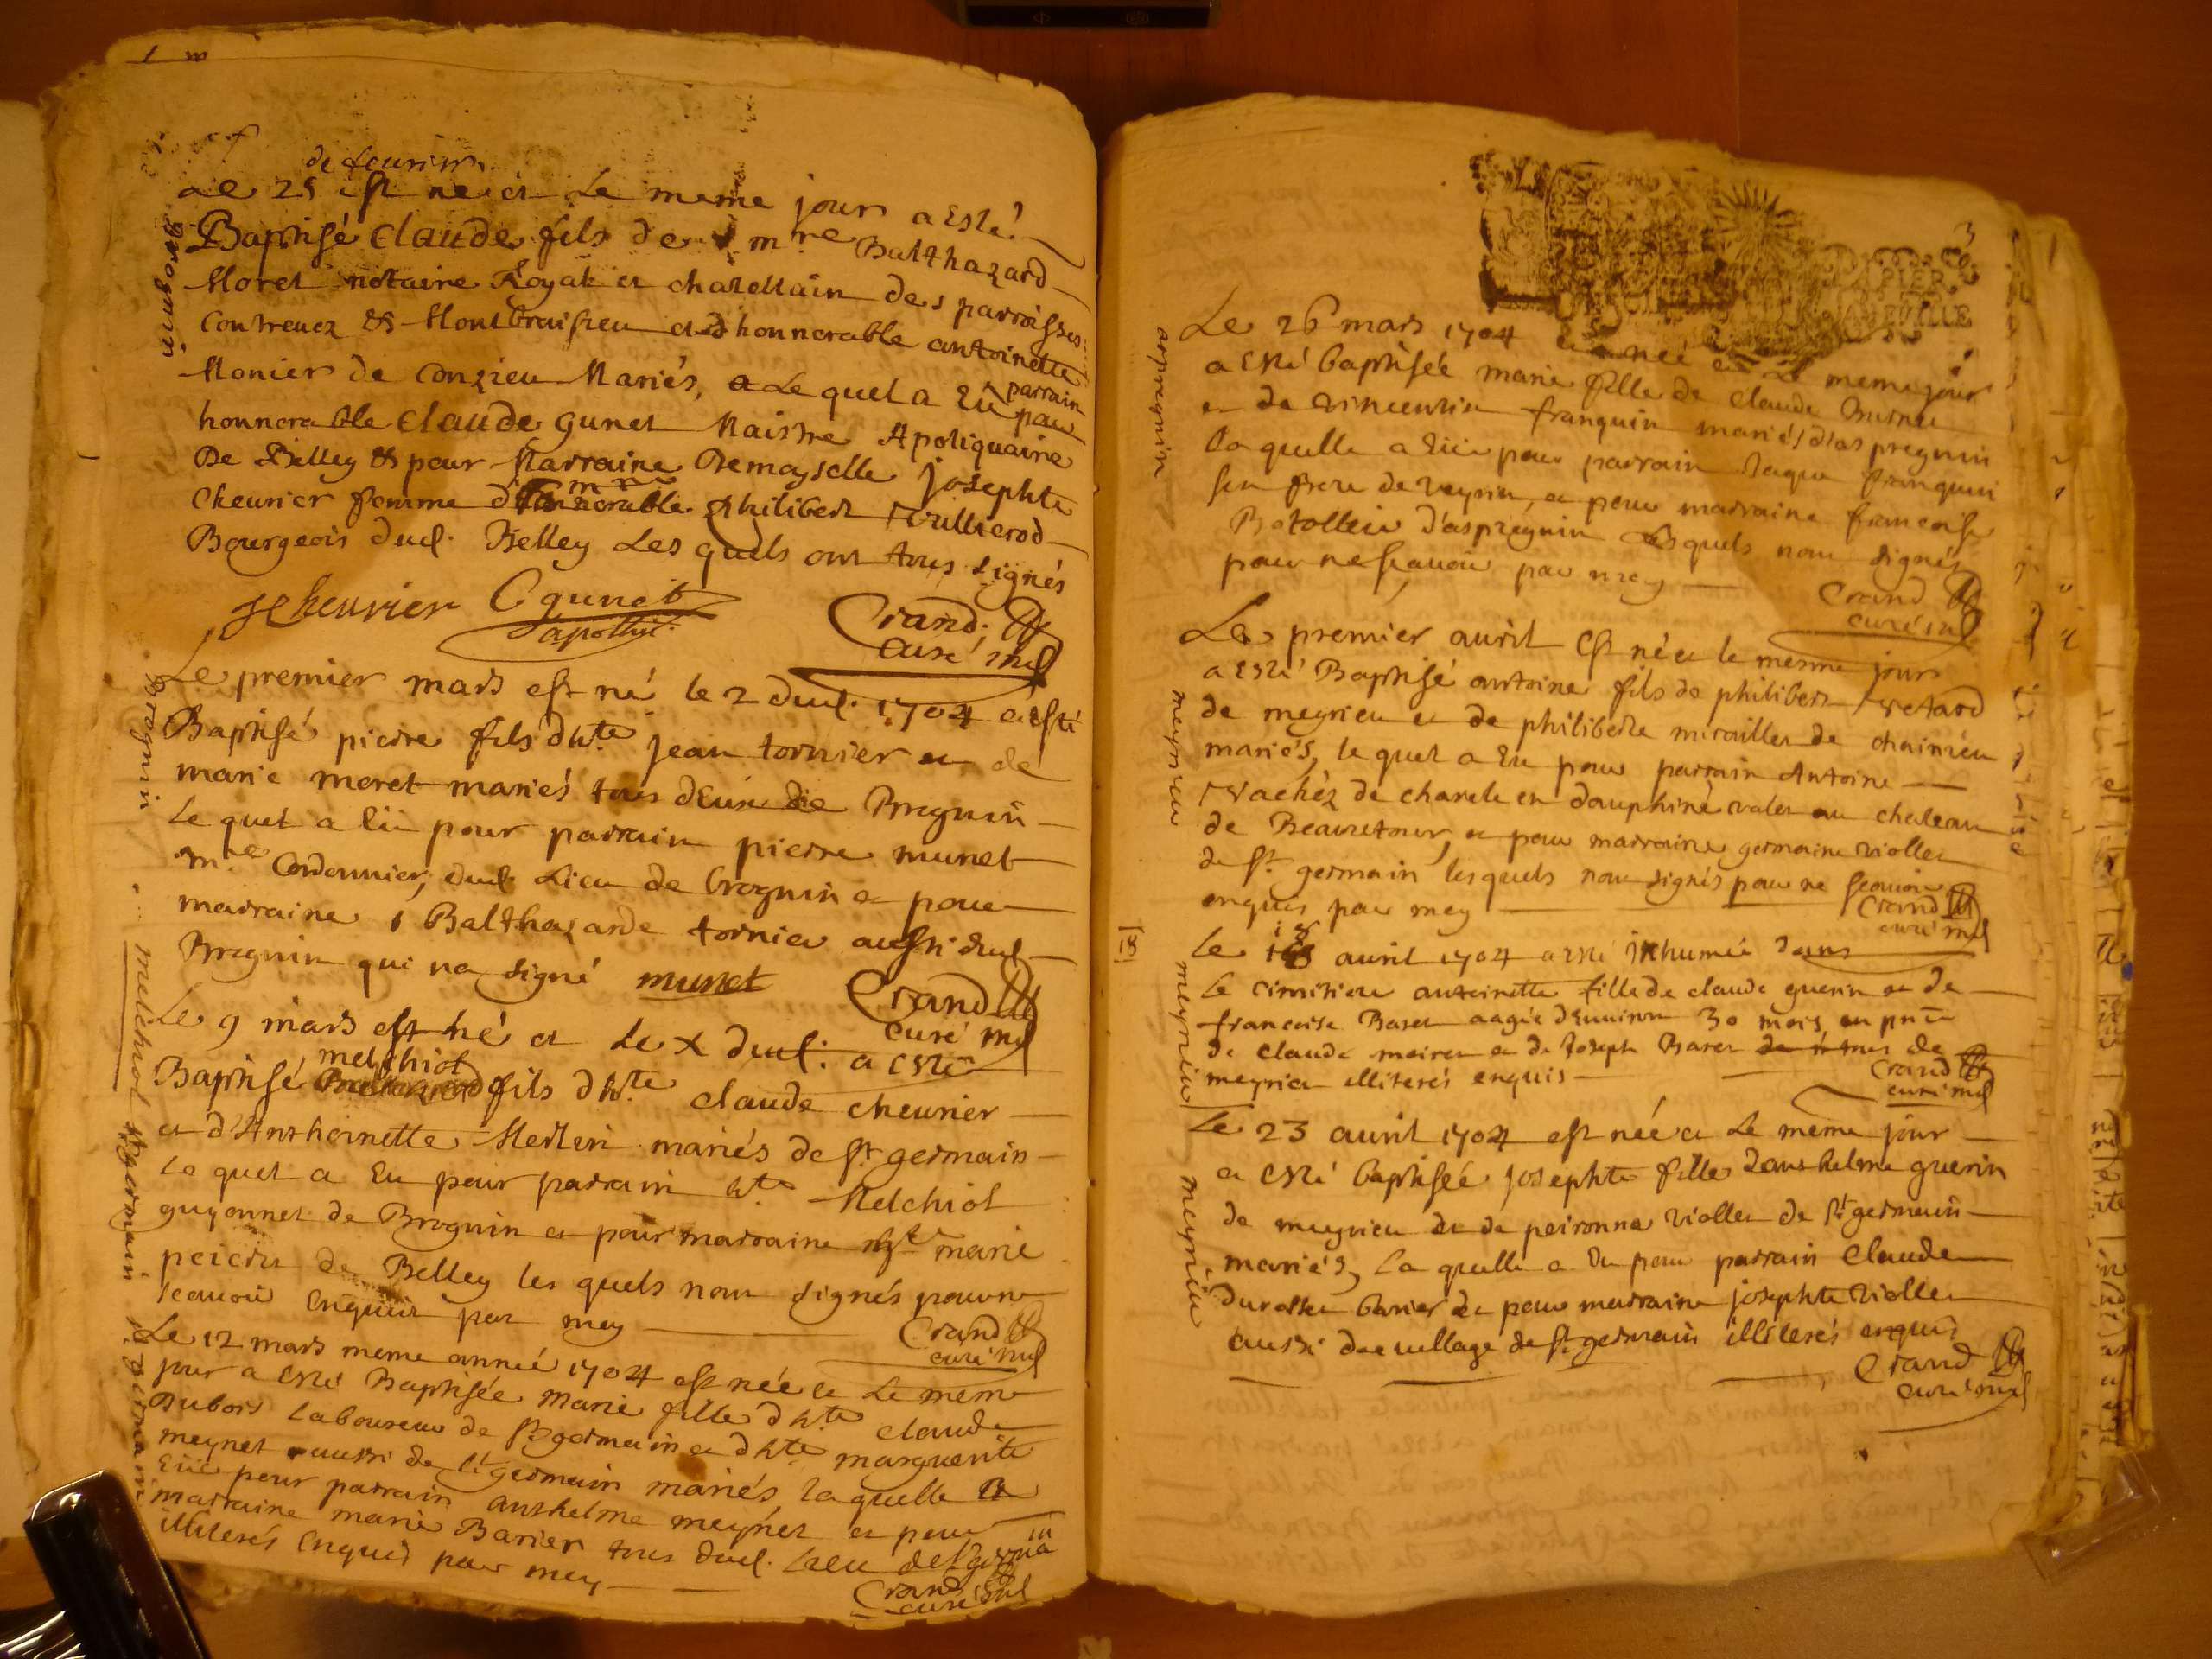 de feurier
Le 25 est ne et Le meme jour a Esté
Baptisé claude fils de mre Balthazard
Moret notaire Royal et chatellain des parroisses
Contreuez & Montbraisieu et d honnorable antoinette
Monier de Conzieu Mariés, Le quel a Eü parrain
honnorable claude gunet Maistre Apotiquaire
De Belley & pour Marraine Demoyselle josephte
cheurier femme d philibert Vullierod
Bourgeois dud. Belley Les quels ont tous signés
JCheurier Cgunet
apothi.
Crand
curé
Brognin
Le premier mars est né le 2 dud. 1704 a esté
Baptisé pierre fils d hte jean tornier et de
marie moret mariés tous deux de Brognin
Le quel a Eü pour parrain pierre munet
mre Cordonnier, dud. Lieu de brognin et pour
marraine Balthazarde tornier aussi dud.
Brognin qui na signé munet
Crand
curé
Brognin
Le 9 mars est né et Le X dud. a esté
melchiol
Baptisé fils d hte claude cheurier
et d'Anthoinette Merlin mariés de st germain
Le quel a Eu pour parrain hte Melchiol
guyonnet de Brognin et pour marraine hte marie
de Belley les quels nont signés pour ne
scauoir Enquis par moy
Crand
curé
melchiol
st germain
Le 12 mars meme année 1704 est née et Le meme
jour a Esté Baptisée Marie fille d hte claude
Dubois Laboureur de st germain et d hte marguerite
meynet aussi de st germain mariés, laquelle a
Eüe pour parrain anthelme meynet et pour
marraine marie Barier tous dud. Lieu de st germain
illiterés Enquis par moy
Crand
curé
st germain
3
PAPIER
Le 26 mars 1704 est née et Le meme jour
a esté baptisée marie fille de claude
et de vincentin franquin mariés d'aspregnin
La quelle a Eüe pour parrain Jaque franquin
son frere de veyrin, et pour marraine francoise
Botollier d'aspregnin Lesquels nont signés
pour ne scauoir par moy
Crand
curé
aspregnin
Le premier auril Est né et le mesme jour
a Esté Baptisé antoine fils de philibert Vretard
de meyrieu et de philiberte mirailler de
mariés, le quel a Eu pour parrain Antoine
Vrachez de en dauphiné valet au chateau
de Beauretour, et pour marraine germaine viollet
de st germain lesquels nont signés pour ne scauoir
enquis par moy
Crand
curé
meyrieu
18
Le 18 auril 1704 a esté inhumée dans
Le cimitiere antoinette fille de claude guerin et de
francoise Baret aagée d'Enuiron 30 mois, en pnce
de claude moiret et de Joseph Baret de
meyrieu illiterés enquis
Crand
curé
meyrieu
Le 23 auril 1704 est née et Le meme jour
a esté baptisée josephte fille d'anthelme guerin
de meyrieu et de peironne viollet de st germain
mariés, La quelle a Eu pour parrain Claude
barier et pour marraine josephte viollet
aussi du village de st germain illiterés enquis
Crand
curé
meyrieu